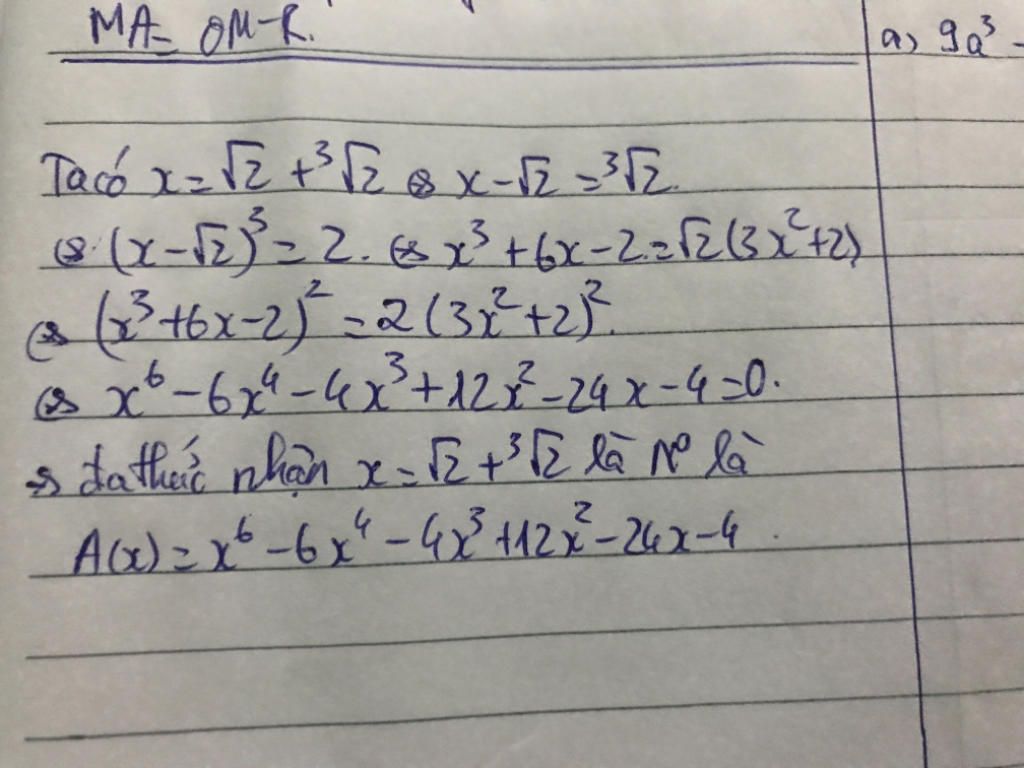 MA = OM-R.
a) 9a³ -
Ta có x = √2 + ³√2 ⇔ x - √2 = ³√2.
⇔ (x - √2)³ = 2. ⇔ x³ + 6x - 2 = √2(3x² + 2)
⇔ (x³ + 6x - 2)² = 2(3x² + 2)².
⇔ x⁶ - 6x⁴ - 4x³ + 12x² - 24x - 4 = 0.
⇒ đa thức nhận x = √2 + ³√2 là Nº là
A(x) = x⁶ - 6x⁴ - 4x³ + 12x² - 24x - 4.